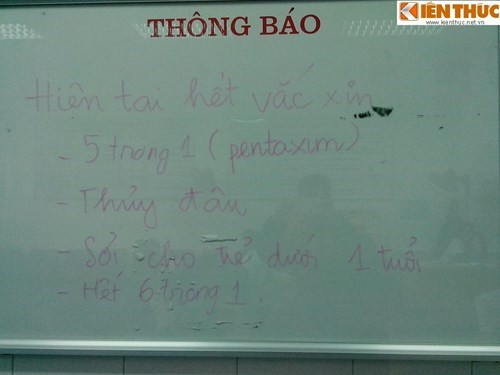 KIẾN THỨC
www.kienthuc.net.vn
THÔNG BÁO
Hiện tại hết vắc xin
- 5 trong 1 (pentaxim)
- Thủy đậu
- Sởi cho trẻ dưới 1 tuổi
- Hết 6 trong 1.